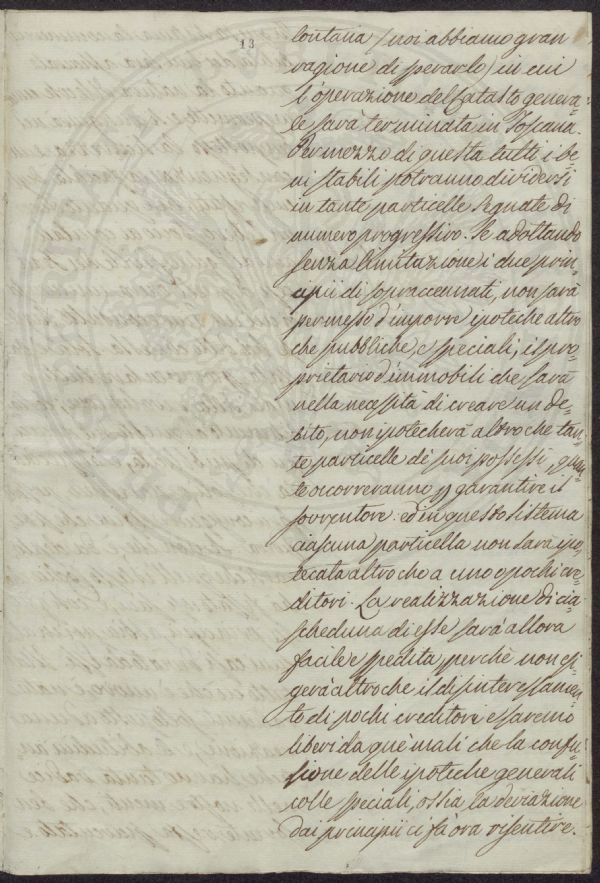 13
lontana (noi abbiamo gran
ragione di sperarlo) in cui
l'operazione del Catasto genera-
le sarà terminata in Toscana.
Per mezzo di questa tutti i be-
ni stabili potranno dividersi
in tante particelle segnate di
numero progressivo. Se adottando
senza limitazione i due prin-
cipii di sopraccennati, non sarà
permesso d'imporre ipoteche altro
che pubbliche, e speciali, il pro-
prietario d'immobili che sarà
nella necessità di creare un de-
bito, non ipotecherà altro che tan-
te particelle de' suoi possessi, quan-
te occorreranno p garantire il
sovventore: ed in questo sistema
ciascuna particella non sarà ipo-
tecata altro che a uno o pochi cre-
ditori. La realizzazione di cia-
scheduna di esse sarà allora
facile e spedita, perchè non esi-
gerà altro che il disinteressamen-
to di pochi creditori e saremo
liberi da que' mali che la confu-
sione delle ipoteche generali
colle speciali, ossia la deviazione
dai principii ci fà ora risentire.